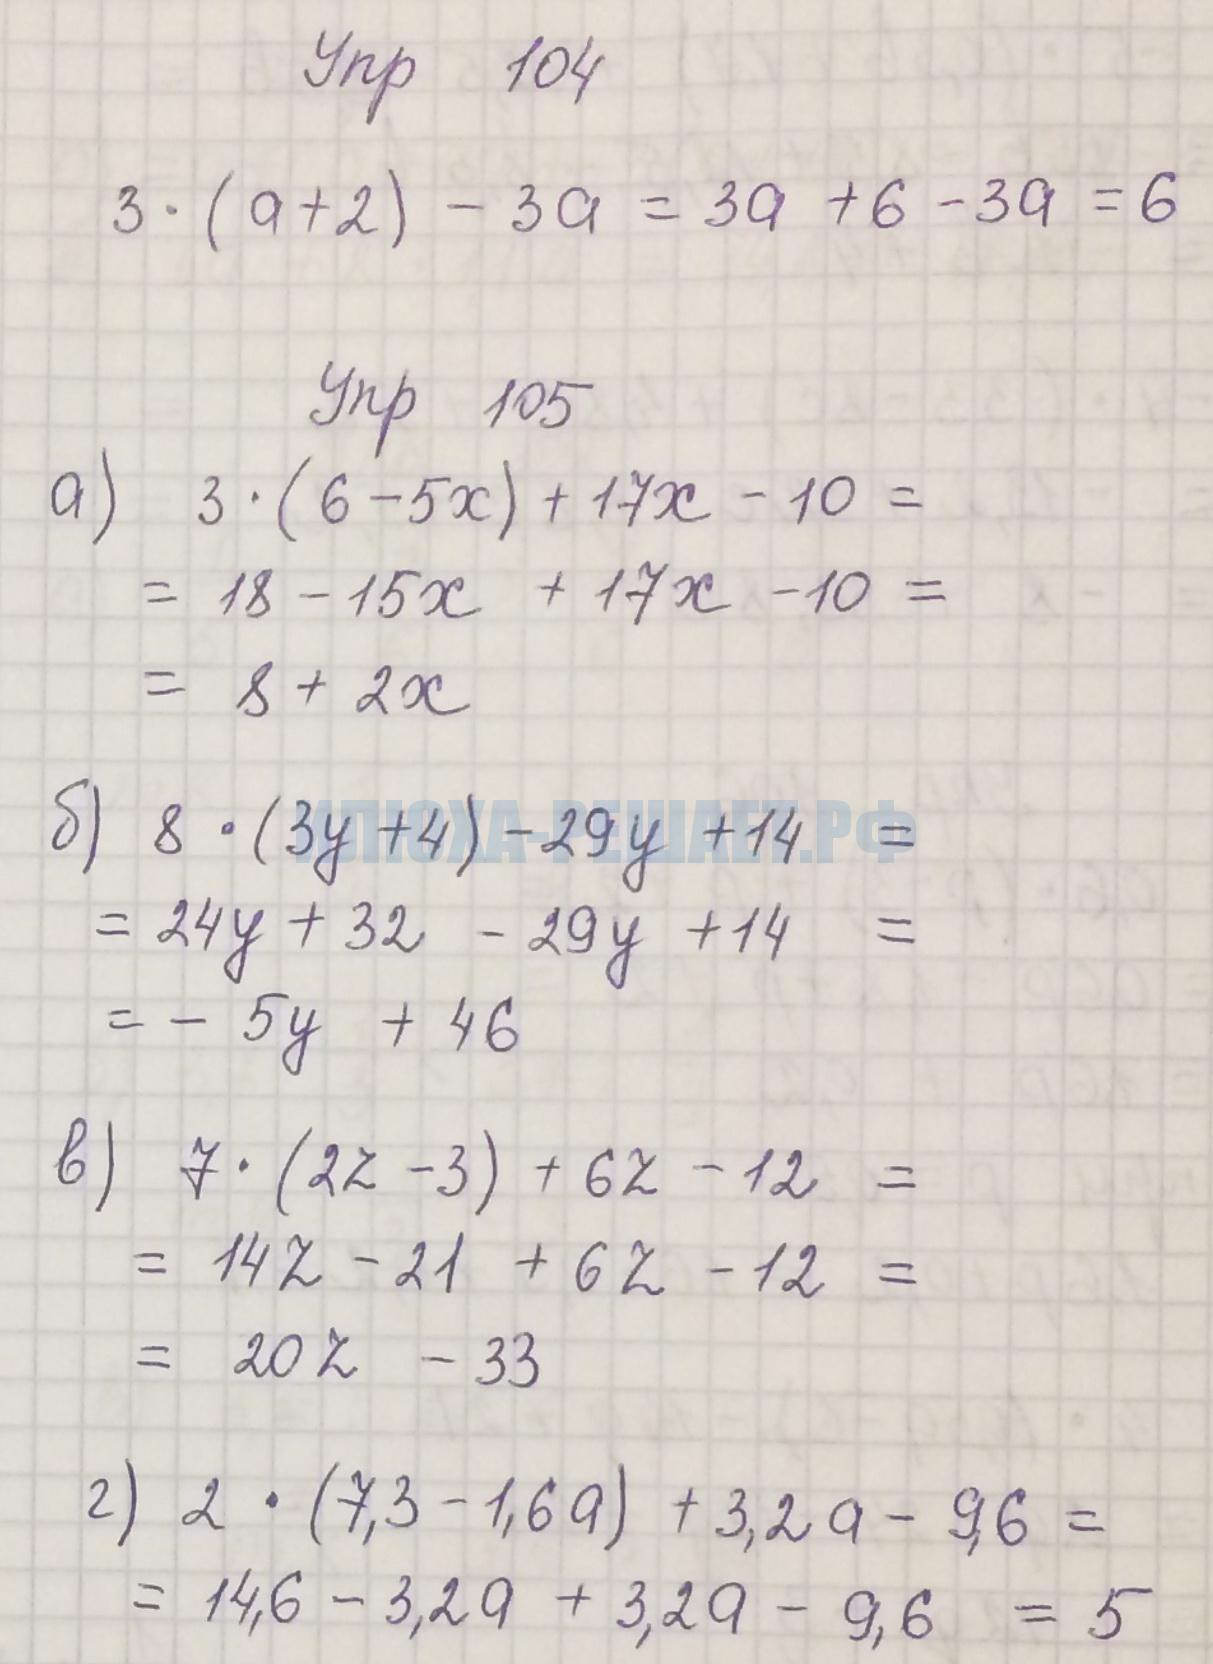 Упр 104
3·(a+2) - 3a = 3a + 6 - 3a = 6
Упр 105
а) 3·(6-5x) + 17x - 10 =
= 18 - 15x + 17x - 10 =
= 8 + 2x
б) 8·(3y+4) - 29y + 14 =
ИЛЮХА-РЕШАЕТ.РФ
= 24y + 32 - 29y + 14 =
= - 5y + 46
в) 7·(2z-3) + 6z - 12 =
= 14z - 21 + 6z - 12 =
= 20z - 33
г) 2·(7,3-1,6a) + 3,2a - 9,6 =
= 14,6 - 3,2a + 3,2a - 9,6 = 5